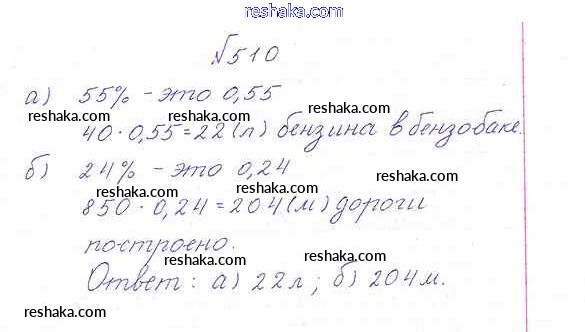 reshaka.com
№510
а) 55% - это 0,55
reshaka.com reshaka.com reshaka.com
40 · 0,55 = 22 (л) бензина в бензобаке.
reshaka.com reshaka.com
б) 24% - это 0,24
reshaka.com reshaka.com reshaka.com
850 · 0,24 = 204 (м) дороги
reshaka.com reshaka.com
построено.
reshaka.com reshaka.com
Ответ: а) 22 л; б) 204 м.
reshaka.com reshaka.com reshaka.com